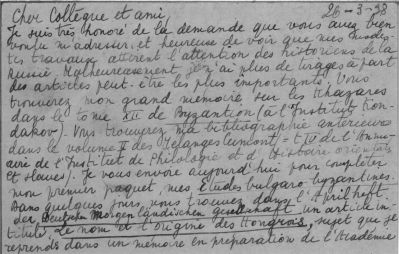 Cher Collègue et ami, 26-3-38
Je suis très honoré de la demande que vous avez bien
voulu m'adresser, et heureuse de voir que mes modes-
tes travaux attirent l'attention des historiens de la
Russie. Malheureusement, je n'ai plus de tirages à part
des articles peut-être les plus importants. Vous
trouverez mon grand mémoire sur les Khazares
dans le tome XII de Byzantion (à l'Institut Kon-
dakov). Vous trouverez ma bibliographie antérieure
dans le volume II des Mélanges Cumont = t. IV de l'Annu-
aire de l'Institut de Philologie et d'Histoire orientales
et slaves). Je vous envoie aujourd'hui pour compléter
mon premier paquet, mes études bulgaro-byzantines.
Dans quelques jours, vous trouverez dans l'Aprilheft
der Deutschen Morgenländischen Gesellschaft un article in-
titulé, Le nom et l'origine des Hongrois, sujet que je
reprends dans un mémoire en préparation de l'Académie